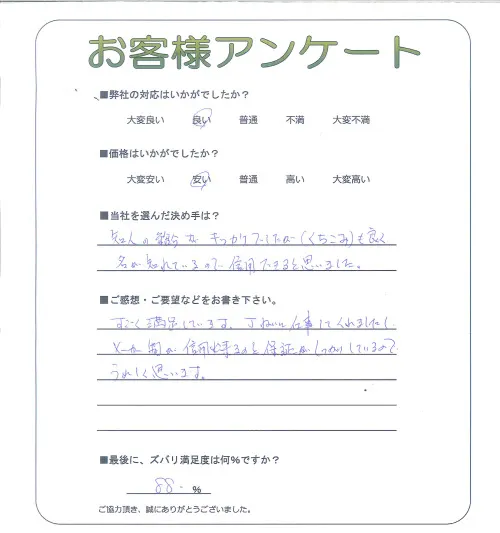 お客様アンケート
■弊社の対応はいかがでしたか？
大変良い 良い 普通 不満 大変不満
■価格はいかがでしたか？
大変安い 安い 普通 高い 大変高い
■当社を選んだ決め手は？
知人の紹介がキッカケでしたが(くちこみ)も良く
名が知れているので信用できると思いました。
■ご感想・ご要望などをお書き下さい。
すごく満足しています。丁ねいに仕事してくれましたし
信用出来るのと保証がしっかりしているので
うれしく思います。
■最後に、ズバリ満足度は何％ですか？
88. %
ご協力頂き、誠にありがとうございました。